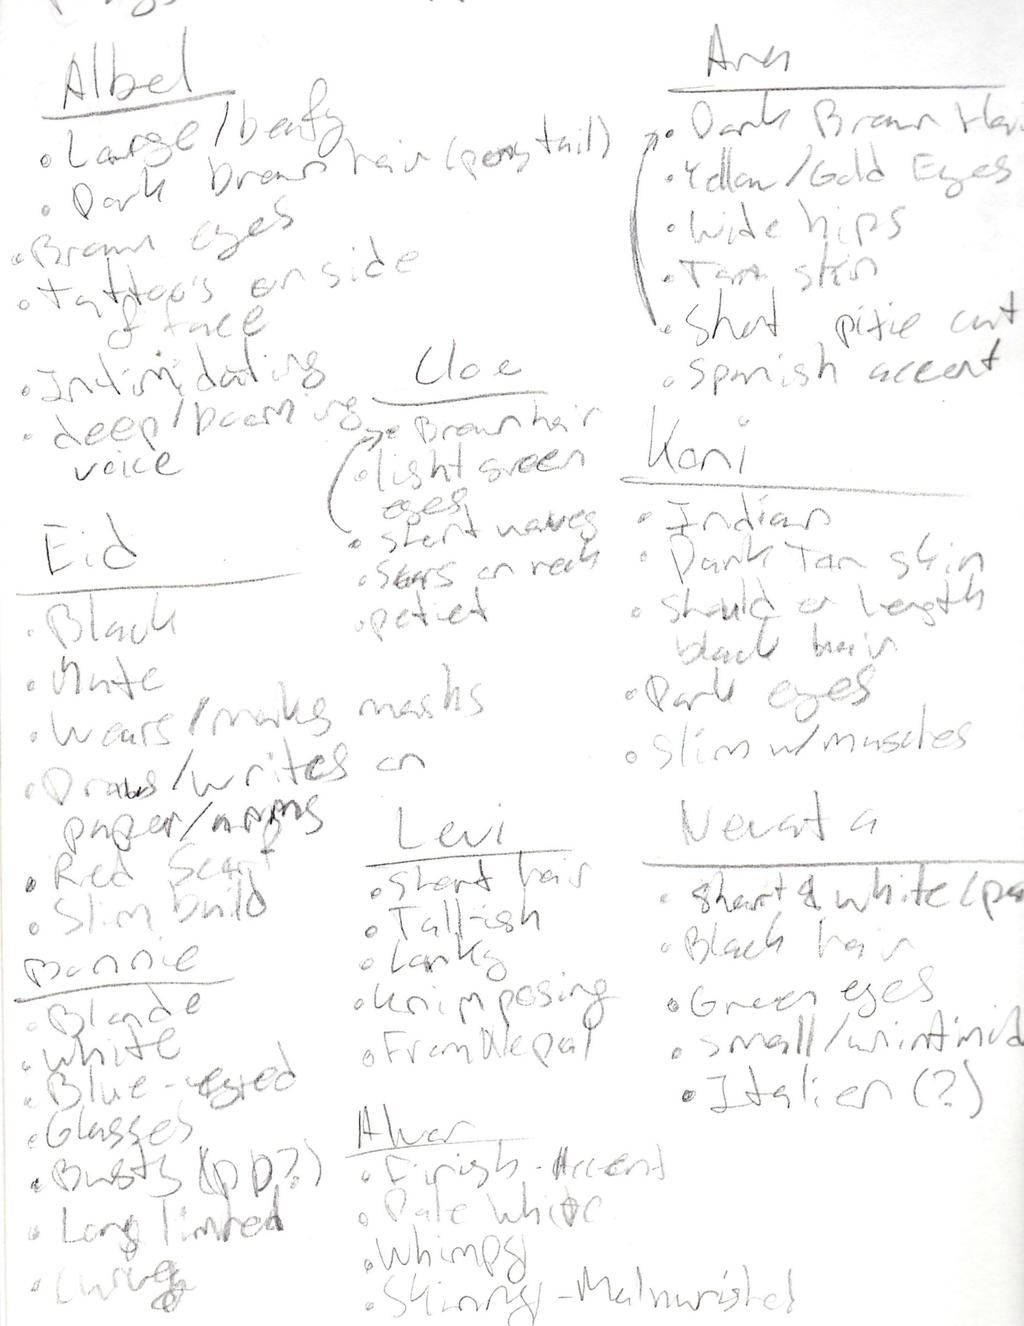 Albel
• Large/beafy
• Dark brown hair (pony tail)
• Brown eyes
• Tattoo's on side
of face
• Intimidating
• deep/booming
voice
Eid
• Black
• Mute
• Wears/makes masks
• Draws/writes on
paper/arms
• Red Scarf
• Slim build
Bonnie
• Blonde
• White
• Blue-eyed
• Glasses
• Busty (DD?)
• Long limbed
• Curvy
Cloe
• Brown hair
• light green
eyes
• short waves
• Scars on neck
• petiet
Levi
• Short hair
• Tall-ish
• Lanky
• Unimposing
• From Nepal
Alvar
• Finish-Accent
• Pale White
• Whimpy
• Skinny-Malnurished
• Dark Brown Hair
• Yellow/Gold Eyes
• Wide hips
• Tan skin
• Short pixie cut
• Spanish accent
Koni
• Indian
• Dark Tan skin
• Shoulder length
black hair
• Dark eyes
• Slim w/muscles
Nevata
• short & white
• Black hair
• Green eyes
• small/unintimid
• Italien (?)